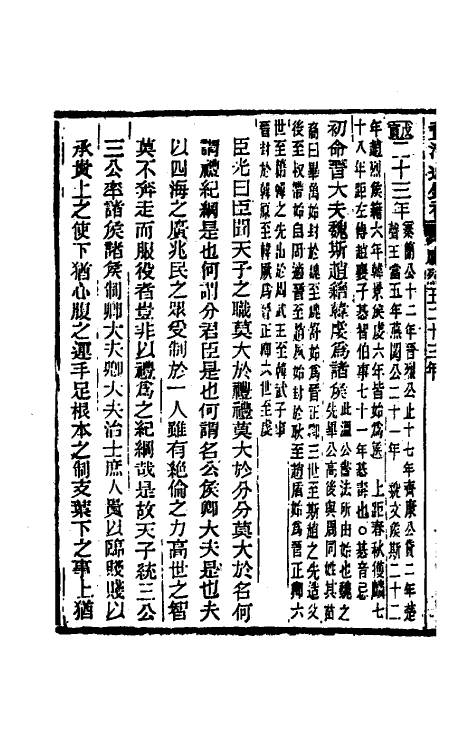 戊寅二十三年秦簡公十二年晉烈公止十七年齊康公貸二年楚
聲王當五年燕閔公二十一年　魏文侯斯二十二
年趙烈侯籍六年韓景侯虔六年皆始為侯　上距春秋獲麟七
十八年距左傳趙襄子惎智伯事七十一年惎毒也○惎音忌
初命晉大夫魏斯趙籍韓虔為諸侯此溫公書法所由始也魏之
先畢公高後與周同姓其苗
裔曰畢萬始封於魏至魏舒始為晉正卿三世至斯趙之先造父
後至叔帶始自周適晉至趙夙始封於耿至趙盾始為晉正卿六
世至籍韓之先出於周武王至韓武子事
晉封於韓原至韓厥為晉正卿六世至虔
臣光曰臣聞天子之職莫大於禮禮莫大於分分莫大於名何
謂禮紀綱是也何謂分君臣是也何謂名公侯卿大夫是也夫
以四海之廣兆民之眾受制於一人雖有絕倫之力高世之智
莫不奔走而服役者豈非以禮為之紀綱哉是故天子統三公
三公率諸侯諸侯制卿大夫卿大夫治士庶人貴以臨賤賤以
承貴上之使下猶心腹之運手足根本之制支葉下之事上猶